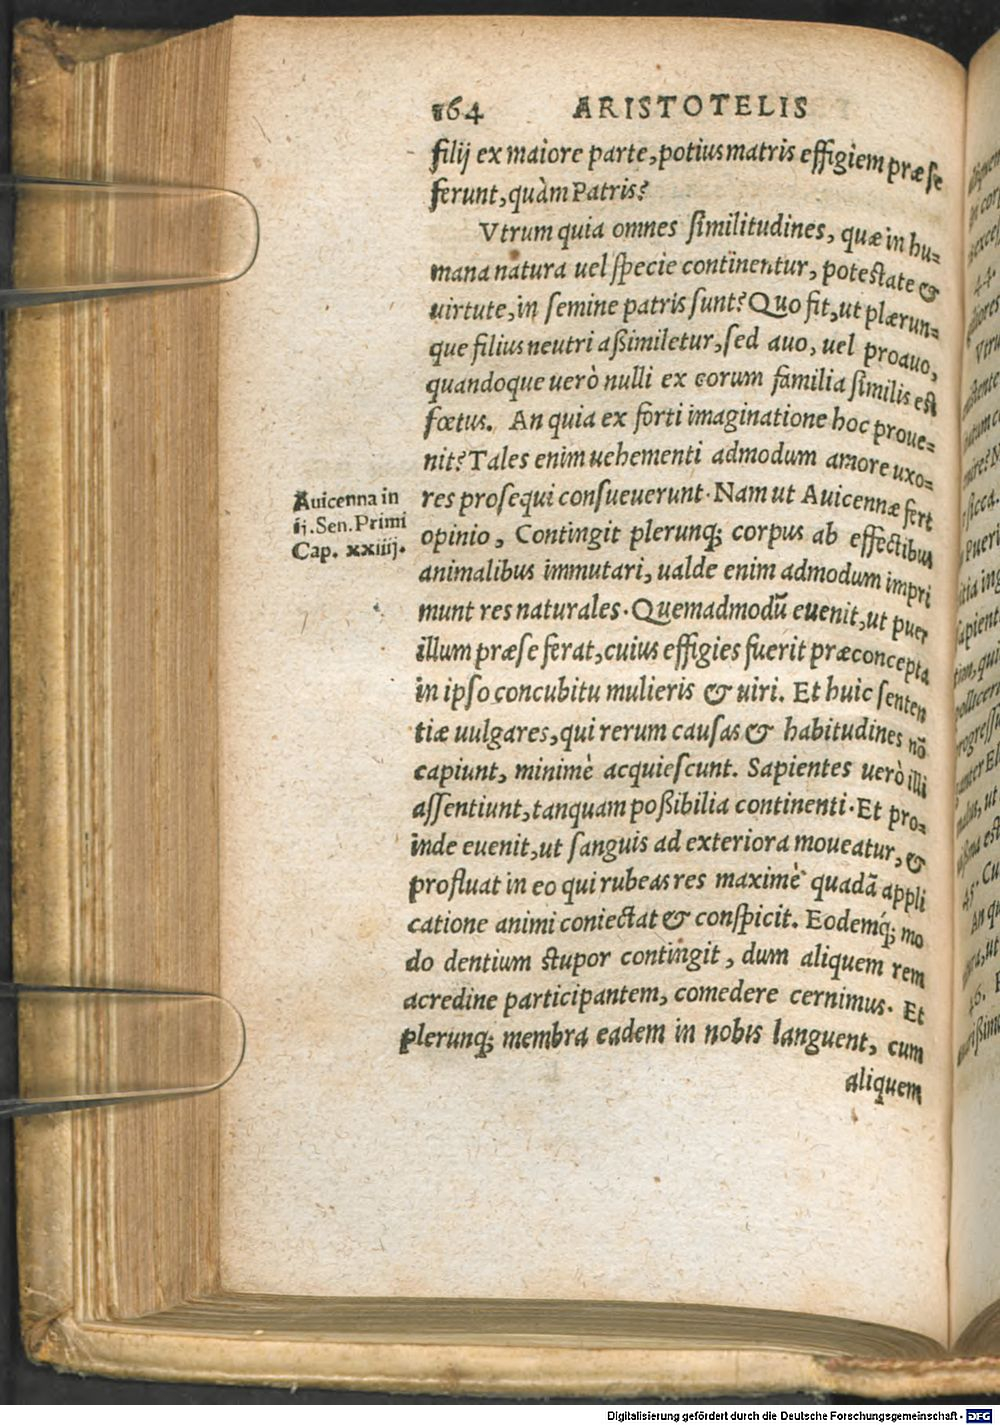 164 ARISTOTELIS
filij ex maiore parte, potius matris effigiem præ se
ferunt, quàm Patris?
Vtrum quia omnes similitudines, quæ in hu=
mana natura uel specie continentur, potestate &
uirtute, in semine patris sunt? Quo fit, ut plærun=
que filius neutri aßimiletur, sed auo, uel proauo,
quandoque uerò nulli ex eorum familia similis est
fœtus. An quia ex forti imaginatione hoc proue=
nit? Tales enim uehementi admodum amore uxo=
res prosequi consueuerunt. Nam ut Auicennæ fert
opinio, Contingit plerunq; corpus ab effectibus
animalibus immutari, ualde enim admodum impri
munt res naturales. Quemadmodū euenit, ut puer
illum præ se ferat, cuius effigies fuerit præconcepta
in ipso concubitu mulieris & uiri. Et huic senten
tiæ uulgares, qui rerum causas & habitudines nō
capiunt, minimè acquiescunt. Sapientes uerò illi
assentiunt, tanquam poßibilia continenti. Et pro=
inde euenit, ut sanguis ad exteriora moueatur, &
profluat in eo qui rubeas res maximè quadā appli
catione animi coniectat & conspicit. Eodemq́; mo
do dentium stupor contingit, dum aliquem rem
acredine participantem, comedere cernimus. Et
plerunq; membra eadem in nobis languent, cum
aliquem
Auicenna in
ij. Sen. Primi
Cap. xxiiij.
Digitalisierung gefördert durch die Deutsche Forschungsgemeinschaft - DFG